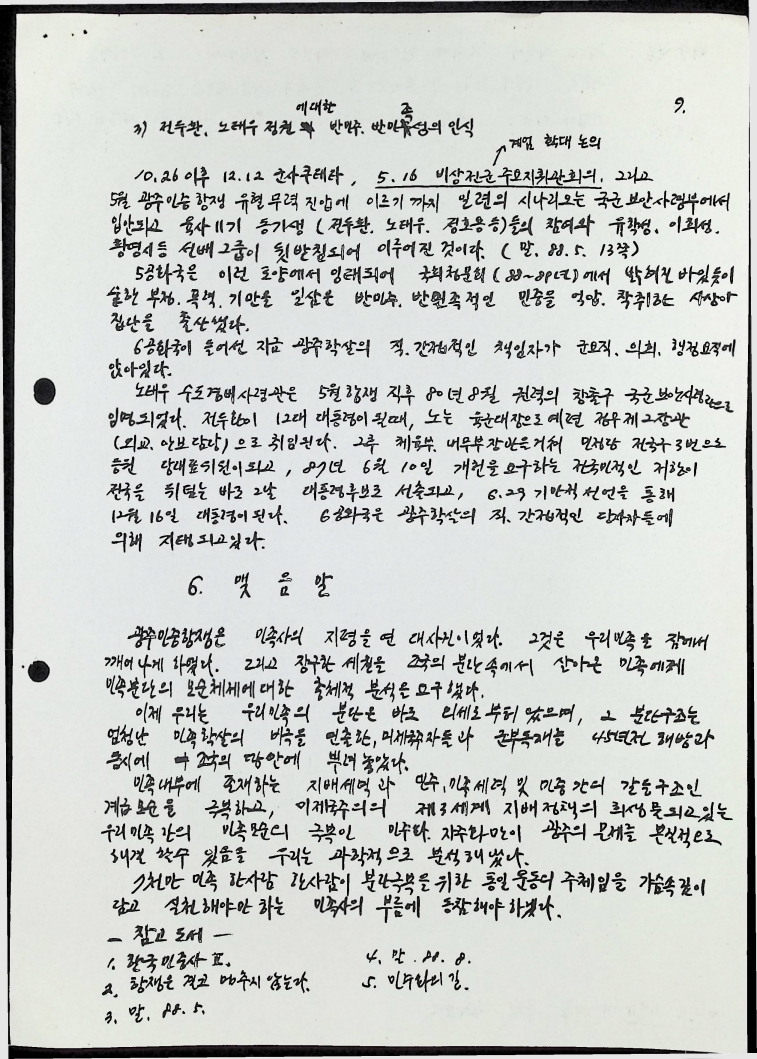 9.
3) 전두환, 노태우 정권에 대한 반민주, 반민족성의 인식
계엄 확대 논의
10.26 이후 12.12 군사쿠테타, 5.16 비상전군 주요지휘관회의, 그리고
5월 광주민중항쟁 유혈 무력 진압에 이르기까지 일련의 시나리오는 국군 보안사령부에서
입안되고 육사 11기 동기생 (전두환, 노태우, 정호용 등)들의 참여와 유학성, 이희성,
황영시등 선배 그룹이 뒷받침되어 이루어진 것이다. (말. 88. 5. 13쪽)
5공화국은 이런 토양에서 잉태되어 국회청문회 (88~89년)에서 밝혀진 바있듯이
숱한 부정, 폭력, 기만을 일삼은 반민주, 반민족적인 민중을 억압, 착취하는
집단을 출산했다.
6공화국이 들어선 지금 광주학살의 직.간접적인 책임자가 군요직, 의회, 행정요직에
앉아있다.
노태우 수도경비사령관은 5월항쟁 직후 80년 8월 권력의 창출구 국군보안사령관으로
임명되었다. 전두환이 12대 대통령이 될때, 노는 육군대장으로 예편 정무 제2장관
(외교, 안보담당)으로 취임된다. 그후 체육부, 내무부장관을 거쳐 민정당 전국구 3번으로
등원 당대표위원이 되고, 87년 6월 10일 개헌을 요구하는 전국민적인 저항이
전국을 뒤덮는 바로 그날 대통령후보로 선출되고, 6.29 기만적 선언을 통해
12월 16일 대통령이 된다. 6공화국은 광주학살의 직. 간접적인 당사자들에
의해 지탱되고있다.
6. 맺음말
광주민중항쟁은 민족사의 지평을 연 대사건이었다. 그것은 우리민족을 잠에서
깨어나게 하였다. 그리고 장구한 세월을 조국의 분단속에서 살아온 민족에게
민족분단의 모순체제에 대한 총체적 분석을 요구했다.
이제 우리는 우리민족의 분단은 바로 외세로부터 왔으며, 그 분단구조는
엄청난 민족학살의 비극을 연출한, 미제국주의자들과 군부독재를 45년전 해방과
동시에 조국의 땅안에 뿌려놓았다.
민족내부에 존재하는 지배세력과 민주, 민족세력 및 민중간의 갈등구조인
계급모순을 극복하고, 미제국주의의 제3세계 지배정책의 희생물되고있는
우리민족간의 민족모순의 극복인 민주화, 자주화만이 광주의 문제를 본질적으로
해결 할수 있음을 우리는 과학적으로 분석해냈다.
7천만 민족 한사람 한사람이 분단극복을 위한 통일운동의 주체임을 가슴속깊이
담고 실천해야만 하는 민족사의 부름에 동참해야 하겠다.
— 참고 도서 —
1. 한국민중사 Ⅱ.
2. 항쟁은 결코 멈추지 않는다.
3. 말. 88. 5.
4. 말. 88. 8.
5. 민주화의 길.